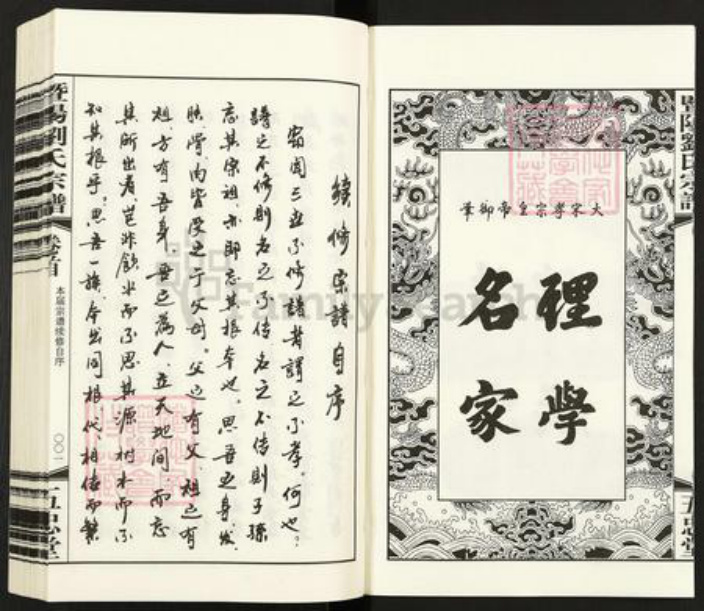 大宋孝宗皇帝御筆
理學
名家
續修宗譜自序
嘗聞三世不修譜者謂之不孝。何也。
譜之不修則名之不傳名之不傳則子孫
忘其宗祖。亦即忘其根本也。思吾之身。髮
膚骨肉皆受之于父母。父之有父。祖之有
祖。方有吾身。吾之為人。立天地間而忘
其所出者。豈非飲水而不思其源樹木而不
知其根乎。思吾一族。本出同根代相傳而繁
暨陽劉氏宗譜
卷首
本届宗譜续修自序
〇〇一
五忠堂